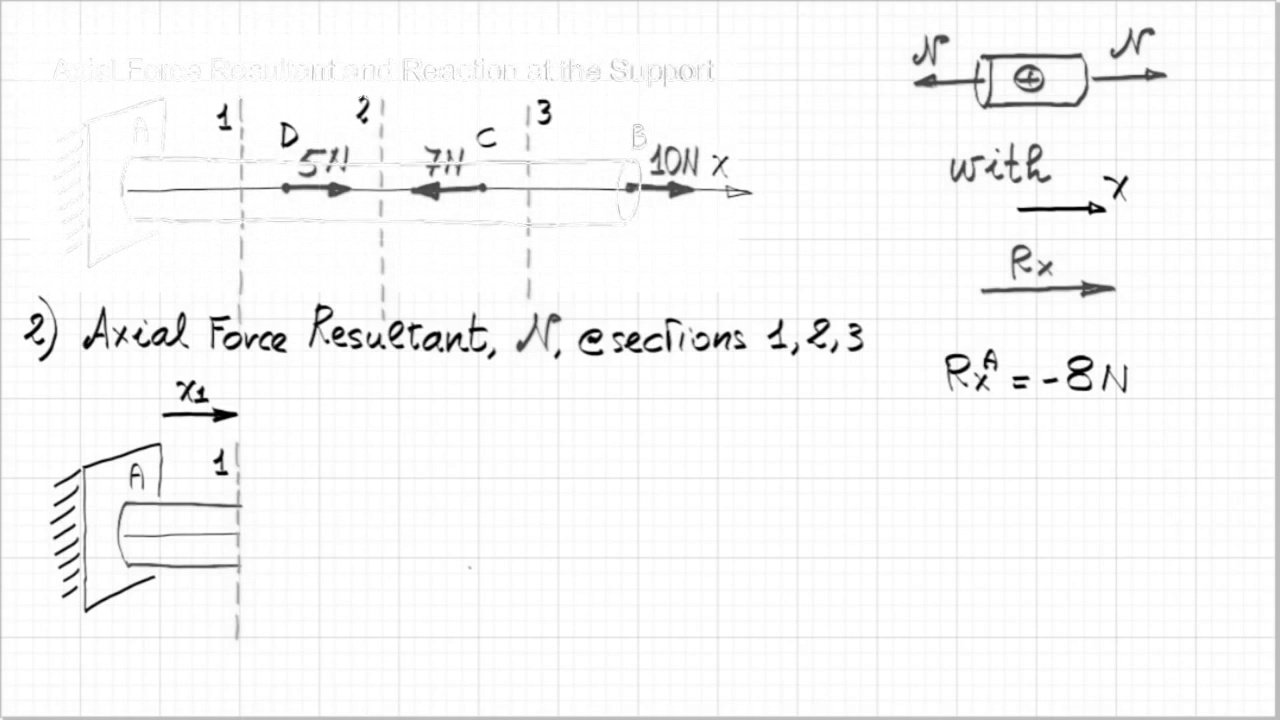 Axial Force Resultant and Reaction at the Support
N N
1 2 3
A D C B
5N 7N 10N x
with
x
Rx
2) Axial Force Resultant, N, @sections 1,2,3
RxA = -8N
x1
1
A